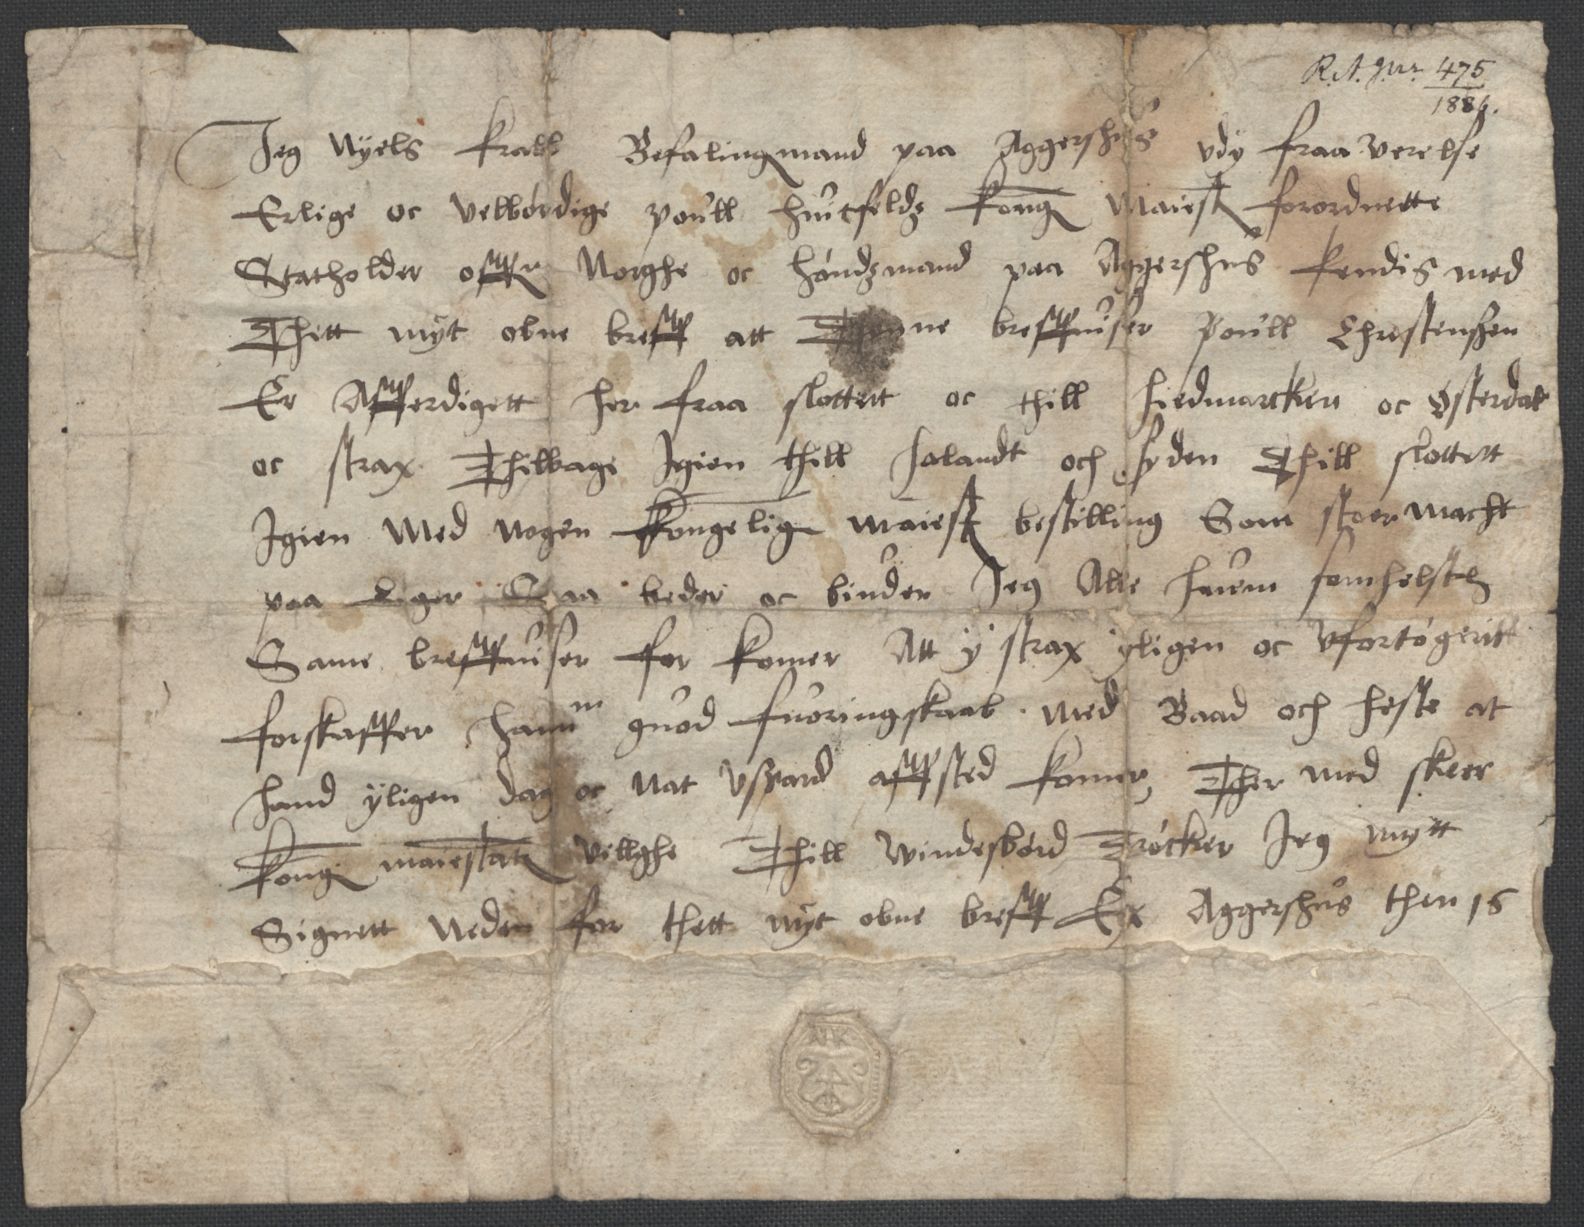 R.A. Jnr. 475
1886.
Jeg Nyels Krabb Befalingmand paa Aggershus vdy fraa verelse
Erlige oc velbördige Pouill Huitfeldz Kong Maiest forordnette
Statholder offuer Norghe oc höndzmand paa Aggershus kendis med
Thitt myt obne breff att Thenne breffuiser Pouill Christenssen
Er Affferdigett her fraa slottett oc till Hiedmarcken oc Østerdal
oc strax Thilbage Igien thill Solandt och syden Thill slottett
Igien Med nogen Kongelig Maiest bestilling Som stoer Macht
paa Liger Saa beder oc binder Jeg Alle huem somhelsth
Same breffuiser for komer Att y strax yligen oc vfortögeritt
forskaffer hannm guod fuoringskaab med Baad och heste at
hand yligen dag oc Nat vspard affsted komer, Ther med skeer
Kong maiestatz villghe Thill Windesbörd Tröcker Jeg mytt
Signett Neden for thett myt obne breff Ex Aggershus then 16
NK